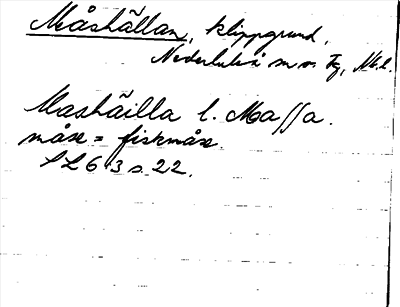 Måshällan, klippgrund,
Nederluleå sn o. Fg, Nb. l.
Mashäilla l. Massa.
måse = fiskmåse
SL 63 s. 22.